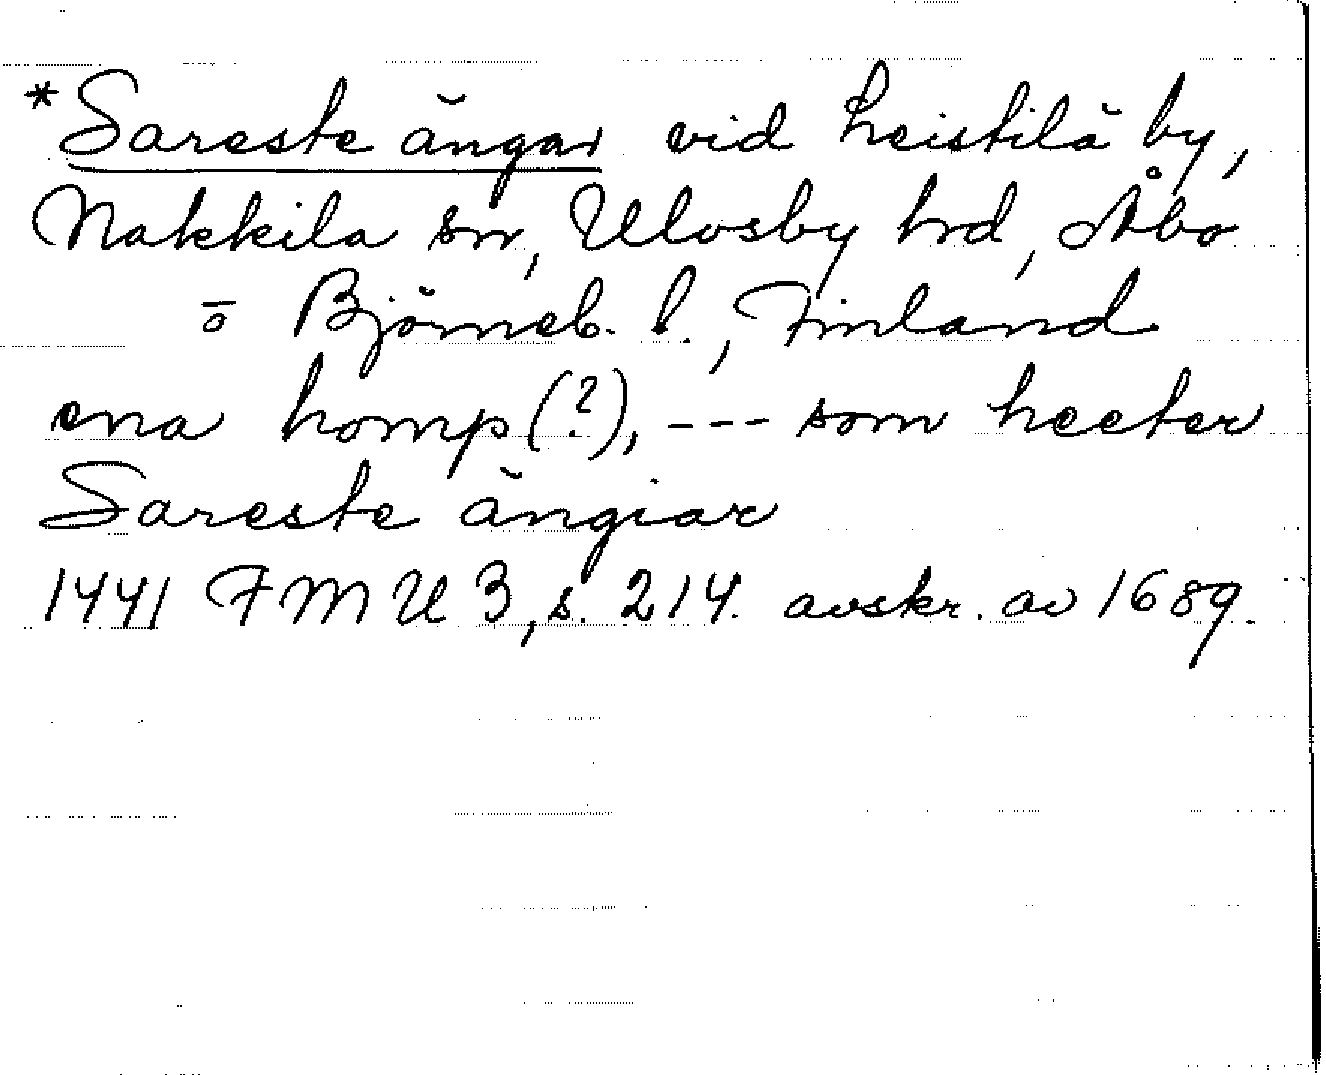 *Sareste ängar vid Leistilä by,
Nakkila sn, Ulvsby hrd, Åbo
o Björneb. l., Finland
ena homp(?), --- som heeter
Sareste ängiar
1441 FMU 3, s. 214. avskr. av 1689.